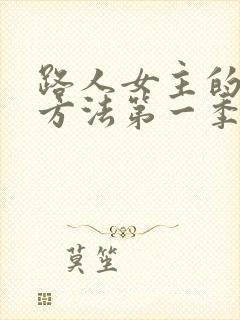 路人女主的
方法第一季
莫笙